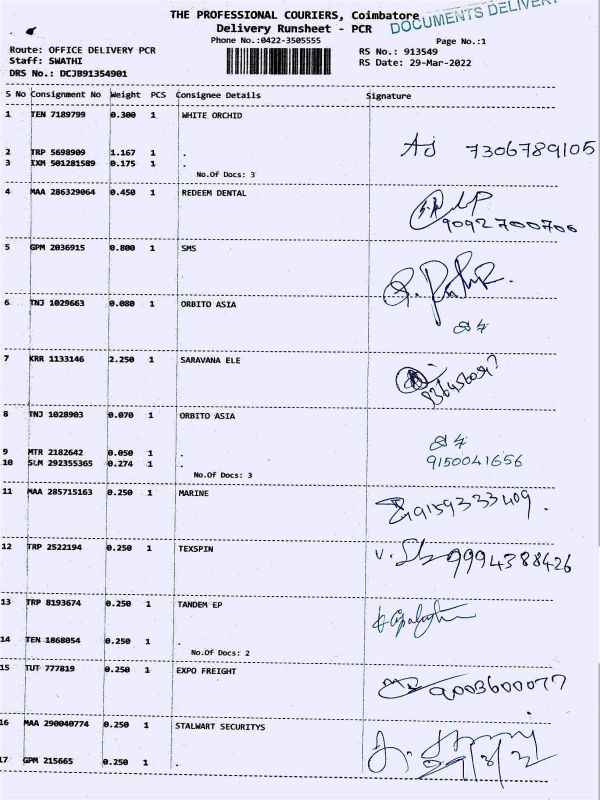 THE PROFESSIONAL COURIERS, Coimbatore
DOCUMENTS DELIVERY
Delivery Runsheet - PCR
Phone No.:0422-3505555
Page No.:1
Route: OFFICE DELIVERY PCR
RS No.: 913549
Staff: SWATHI
RS Date: 29-Mar-2022
DRS No.: DCJB91354901
S No Consignment No Weight PCS Consignee Details Signature
1 TEN 7189799 0.300 1 WHITE ORCHID
2 TRP 5698909 1.167 1 .
AJ 7306789105
3 IXM 501281589 0.175 1 .
No.Of Docs: 3
4 MAA 286329064 0.450 1 REDEEM DENTAL
9092700706
5 GPM 2036915 0.800 1 SMS
6 TNJ 1029663 0.080 1 ORBITO ASIA
7 KRR 1133146 2.250 1 SARAVANA ELE
8 TNJ 1028903 0.070 1 ORBITO ASIA
9 MTR 2182642 0.050 1 .
10 SLM 292355365 0.274 1 .
9150041656
No.Of Docs: 3
11 MAA 285715163 0.250 1 MARINE
9159333409.
12 TRP 2522194 0.250 1 TEXSPIN
9994388426
13 TRP 8193674 0.250 1 TANDEM EP
14 TEN 1868054 0.250 1 .
No.Of Docs: 2
15 TUT 777819 0.250 1 EXPO FREIGHT
9003600077
16 MAA 290040774 0.250 1 STALWART SECURITYS
29/3/22
17 GPM 215665 0.250 1 .